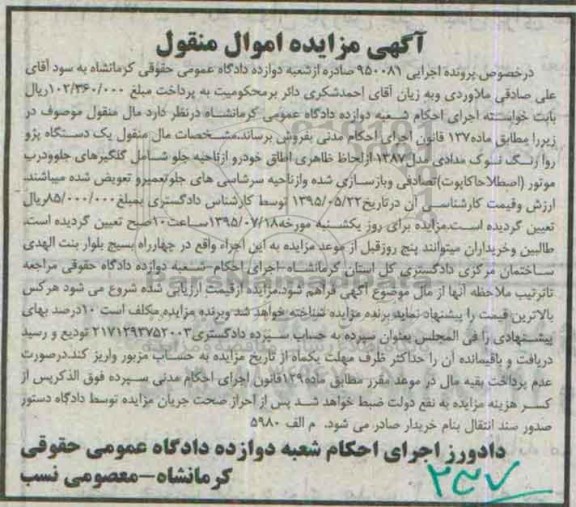 آگهی مزایده اموال منقول
درخصوص پرونده اجرایی ۹۵۰۰۸۱ صادره ازشعبه دوازده دادگاه عمومی حقوقی کرمانشاه به سود آقای
علی صادقی ملاوردی وبه زیان آقای احمدشکری دائر برمحکومیت به پرداخت مبلغ ۱۰۲/۳۶۰/۰۰۰ریال
بابت خواسته اجرای احکام شعبه دوازده دادگاه عمومی کرمانشاه درنظر دارد مال منقول موصوف در
زیررا مطابق ماده۱۳۷ قانون اجرای احکام مدنی بفروش برساند.مشخصات مال منقول یک دستگاه پژو
روا رنگ نوک مدادی مدل۱۳۸۷ازلحاظ ظاهری اطاق خودرو ازناحیه جلو شامل گلگیرهای جلوودرب
موتور (اصطلاحاکاپوت)تصادفی وبازسازی شده وازناحیه سرشاسی های جلوتعمیرو تعویض شده میباشند.
ارزش وقیمت کارشناسی آن درتاریخ۱۳۹۵/۰۵/۲۲ توسط کارشناس دادگستری بمبلغ۸۵/۰۰۰/۰۰۰ریال
تعیین گردیده است.مزایده برای روز یکشنبه مورخه۱۳۹۵/۰۷/۱۸ساعت۱۰صبح تعیین گردیده است.
طالبین وخریداران میتوانند پنج روزقبل از موعد مزایده به این اجراء واقع در چهارراه بسیج بلوار بنت الهدی
ساختمان مرکزی دادگستری کل استان کرمانشاه-اجرای احکام-شعبه دوازده دادگاه حقوقی مراجعه
تاترتیب ملاحظه آنها از مال موضوع آگهی فراهم شود.مزایده ازقیمت ارزیابی شده شروع می شود هرکس
بالاترین قیمت را پیشنهاد نماید برنده مزایده شناخته خواهد شد وبرنده مزایده مکلف است ۱۰درصد بهای
پیشنهادی را فی المجلس بعنوان سپرده به حساب سپرده دادگستری۲۱۷۱۲۹۳۷۵۲۰۰۳ تودیع و رسید
دریافت و باقیمانده آن را حداکثر ظرف مهلت یکماه از تاریخ مزایده به حساب مزبور واریز کند.درصورت
عدم پرداخت بقیه مال در موعد مقرر مطابق ماده۱۲۹قانون اجرای احکام مدنی سپرده فوق الذکرپس از
کسر هزینه مزایده به نفع دولت ضبط خواهد شد پس از احراز صحت جریان مزایده توسط دادگاه دستور
صدور سند انتقال بنام خریدار صادر می شود. م الف ۵۹۸۰
دادورز اجرای احکام شعبه دوازده دادگاه عمومی حقوقی
کرمانشاه-معصومی نسب
۲۳۷